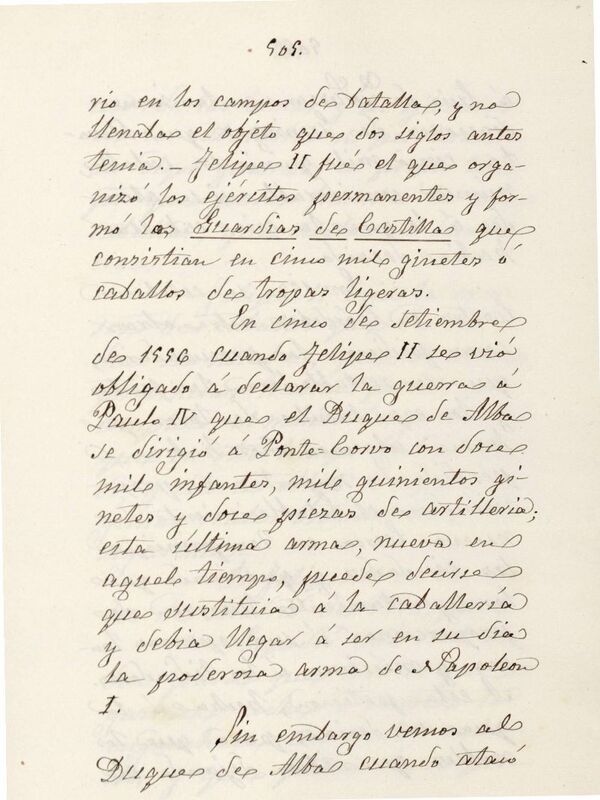 505.
rio en los campos de batalla, y no
llenaba el objeto que dos siglos antes
tenia. — Felipe II fué el que orga-
nizó los ejércitos permanentes y for-
mó las Guardias de Castilla que
consistian en cinco mil ginetes ó
caballos de tropas ligeras.
En cinco de setiembre
de 1556 cuando Felipe II se vió
obligado á declarar la guerra á
Paulo IV que el Duque de Alba
se dirigió á Ponte-Corvo con doce
mil infantes, mil quinientos gi-
netes y doce piezas de artilleria;
esta última arma, nueva en
aquel tiempo, puede decirse
que sustituia á la caballería
y debia llegar á ser en su dia
la poderosa arma de Napoleon
I.
Sin embargo vemos al
Duque de Alba cuando atacó